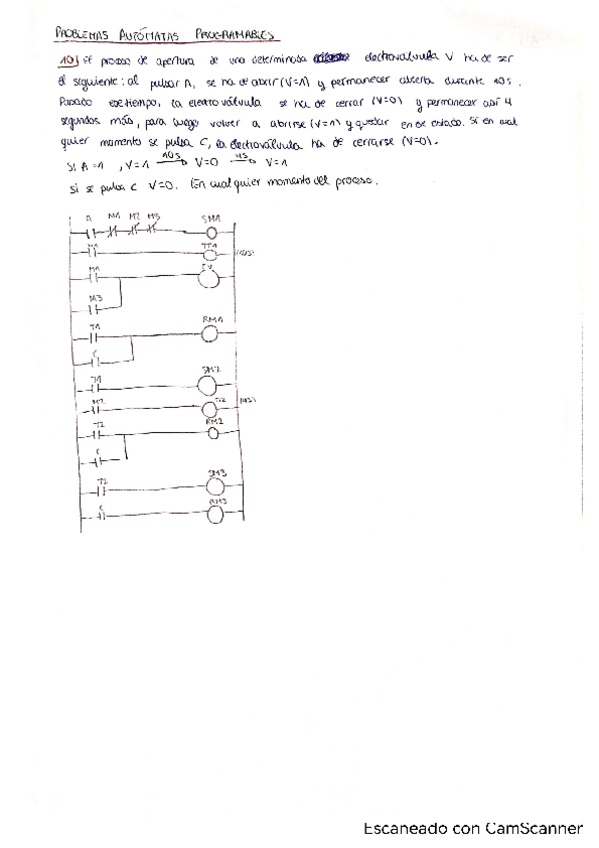 PROBLEMAS AUTÓMATAS PROGRAMABLES
10) El proceso de apertura de una determinada electroválvula V ha de ser
el siguiente: al pulsar A, se ha de abrir (V=1) y permanecer abierta durante 10s.
Pasado ese tiempo, la electroválvula se ha de cerrar (V=0) y permanecer así 4
segundos más, para luego volver a abrirse (V=1) y quedar en ese estado. Si en cual
quier momento se pulsa C, la electroválvula ha de cerrarse (V=0).
Si A=1 , V=1 10s V=0 4s V=1
si se pulsa C V=0. En cualquier momento del proceso.
A M1 M2 M3 SM1
M1 TT1
M1
M3
T1 RM1
C
T1 SM2
M2
T2 RM2
C
T2 SM3
C
Escaneado con CamScanner